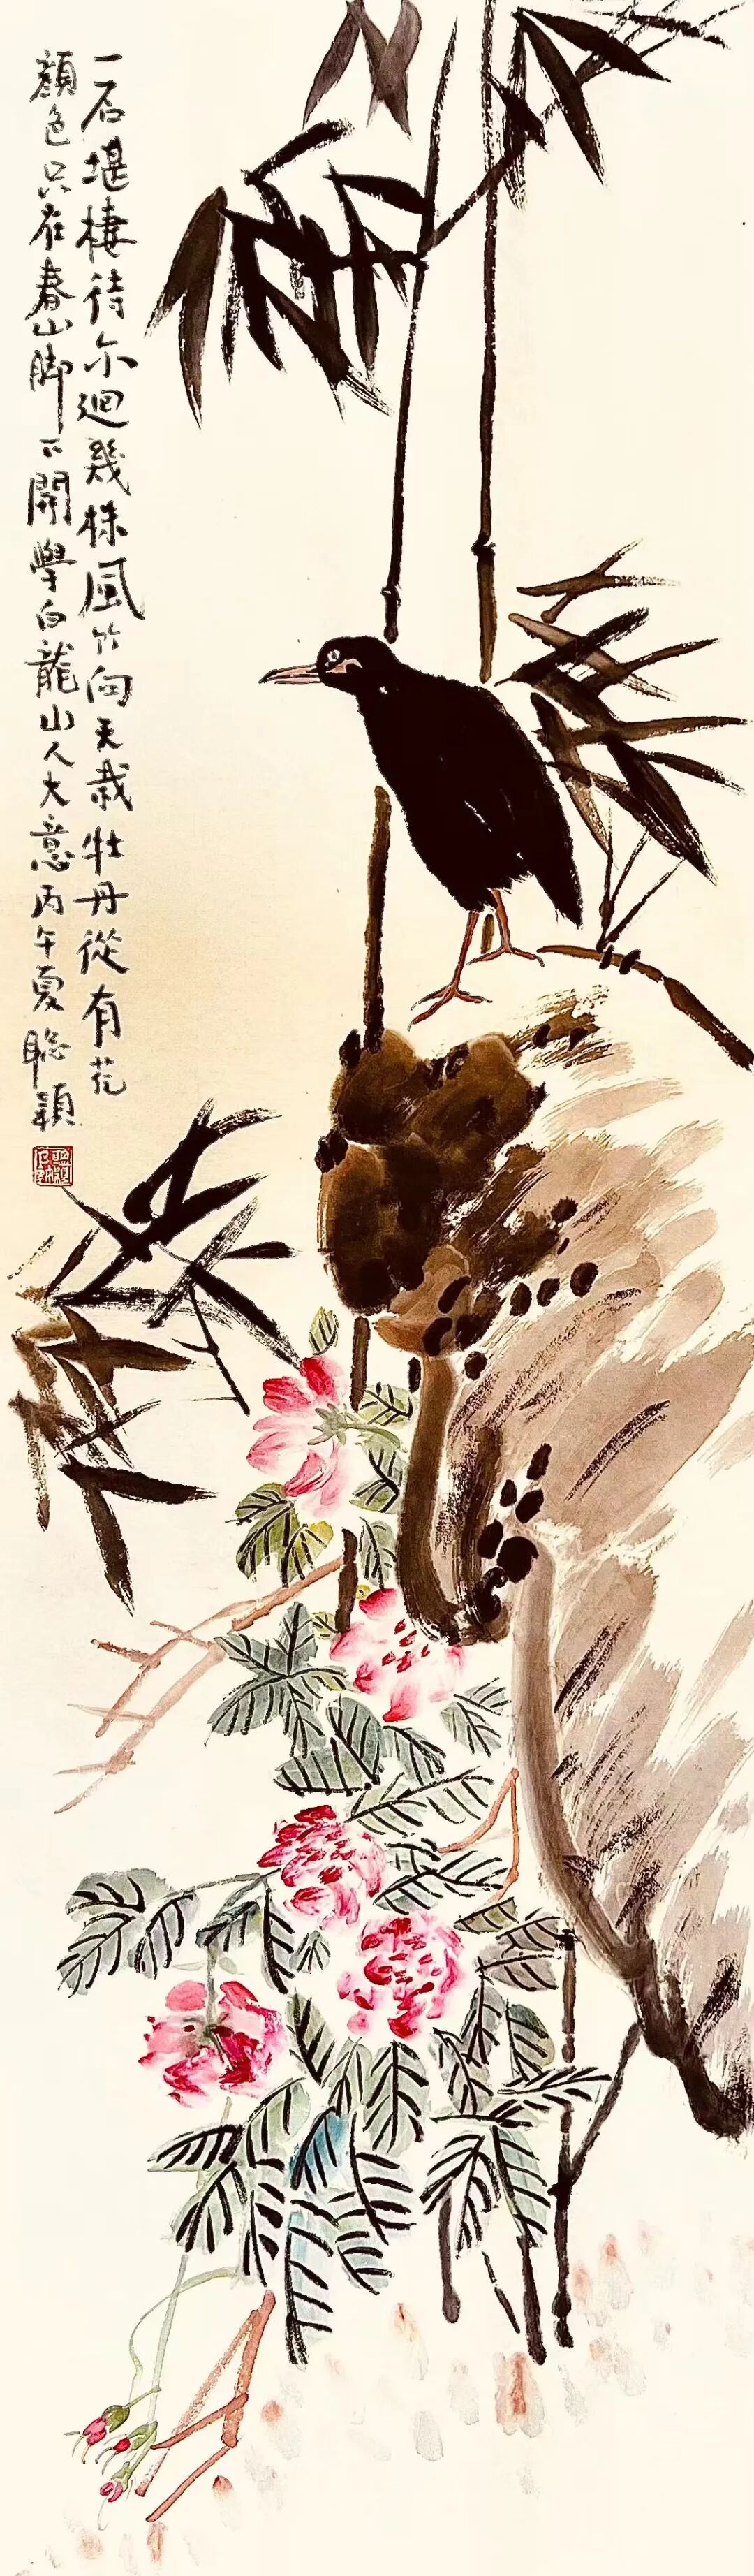 一石堪棲待尓迴幾株風竹向天栽牡丹從有花
顔色只在春山脚下開學白龍山人大意丙午夏聪穎